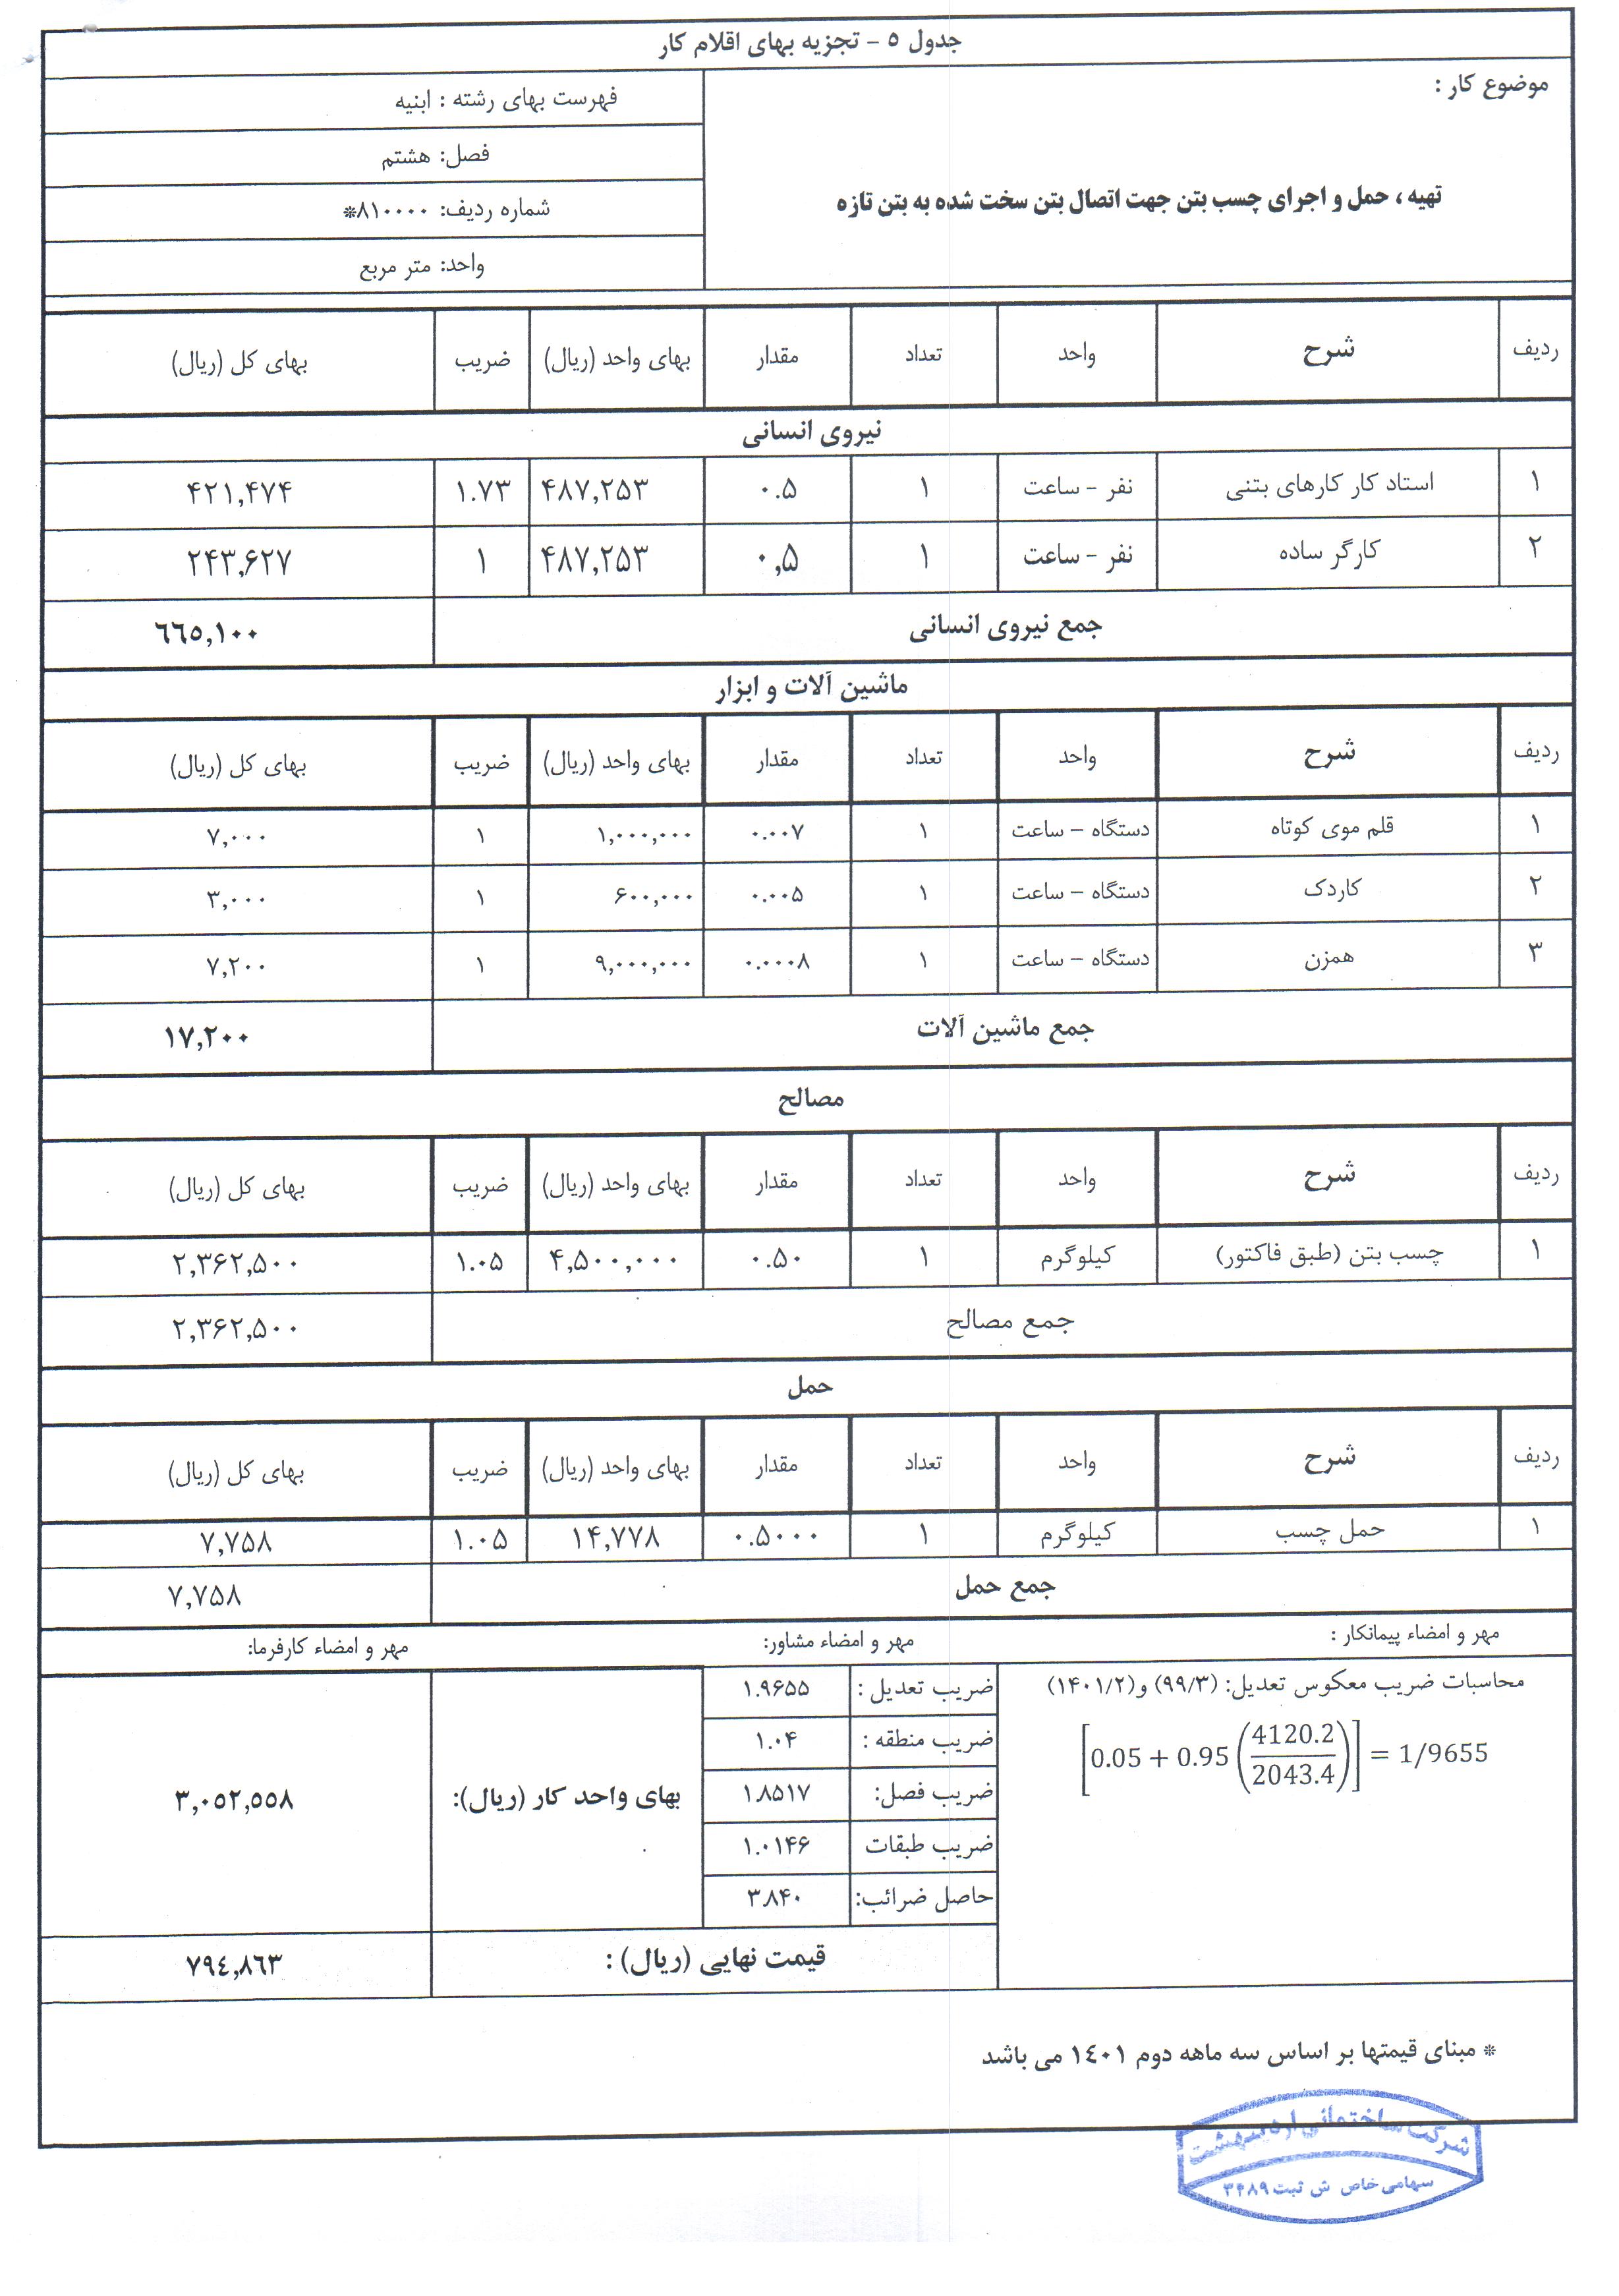 جدول ۵ - تجزیه بهای اقلام کار
موضوع کار :
تهیه ، حمل و اجرای چسب بتن جهت اتصال بتن سخت شده به بتن تازه
فهرست بهای رشته : ابنیه
فصل: هشتم
شماره ردیف: ۸۱۰۰۰۰*
واحد: متر مربع
ردیف شرح واحد تعداد مقدار بهای واحد (ریال) ضریب بهای کل (ریال)
نیروی انسانی
۱ استاد کار کارهای بتنی نفر - ساعت ۱ ۰.۵ ۴۸۷,۲۵۳ ۱.۷۳ ۴۲۱,۴۷۴
۲ کارگر ساده نفر - ساعت ۱ ۰,۵ ۴۸۷,۲۵۳ ۱ ۲۴۳,۶۲۷
جمع نیروی انسانی ٦٦٥,١٠٠
ماشین آلات و ابزار
ردیف شرح واحد تعداد مقدار بهای واحد (ریال) ضریب بهای کل (ریال)
۱ قلم موی کوتاه دستگاه - ساعت ۱ ۰.۰۰۷ ۱,۰۰۰,۰۰۰ ۱ ۷,۰۰۰
۲ کاردک دستگاه - ساعت ۱ ۰.۰۰۵ ۶۰۰,۰۰۰ ۱ ۳,۰۰۰
۳ همزن دستگاه - ساعت ۱ ۰.۰۰۰۸ ۹,۰۰۰,۰۰۰ ۱ ۷,۲۰۰
جمع ماشین آلات ۱۷,۲۰۰
مصالح
ردیف شرح واحد تعداد مقدار بهای واحد (ریال) ضریب بهای کل (ریال)
۱ چسب بتن (طبق فاکتور) کیلوگرم ۱ ۰.۵۰ ۴,۵۰۰,۰۰۰ ۱.۰۵ ۲,۳۶۲,۵۰۰
جمع مصالح ۲,۳۶۲,۵۰۰
حمل
ردیف شرح واحد تعداد مقدار بهای واحد (ریال) ضریب بهای کل (ریال)
۱ حمل چسب کیلوگرم ۱ ۰.۵۰۰۰ ۱۴,۷۷۸ ۱.۰۵ ۷,۷۵۸
جمع حمل ۷,۷۵۸
مهر و امضاء پیمانکار : مهر و امضاء مشاور: مهر و امضاء کارفرما:
محاسبات ضریب معکوس تعدیل: (۹۹/۳) و(۱۴۰۱/۲)
[0.05 + 0.95 (4120.2/2043.4)] = 1/9655
ضریب تعدیل : ۱.۹۶۵۵
ضریب منطقه : ۱.۰۴
ضریب فصل: ۱.۸۵۱۷
ضریب طبقات ۱.۰۱۴۶
حاصل ضرائب: ۳.۸۴۰
بهای واحد کار (ریال): ۳,۰۵۲,۵۵۸
قیمت نهایی (ریال) : ٧٩٤,٨٦٣
* مبنای قیمتها بر اساس سه ماهه دوم ١٤٠١ می باشد
شرکت ساختمانی اردیبهشت
سهامی خاص ش ثبت ۳۴۸۹